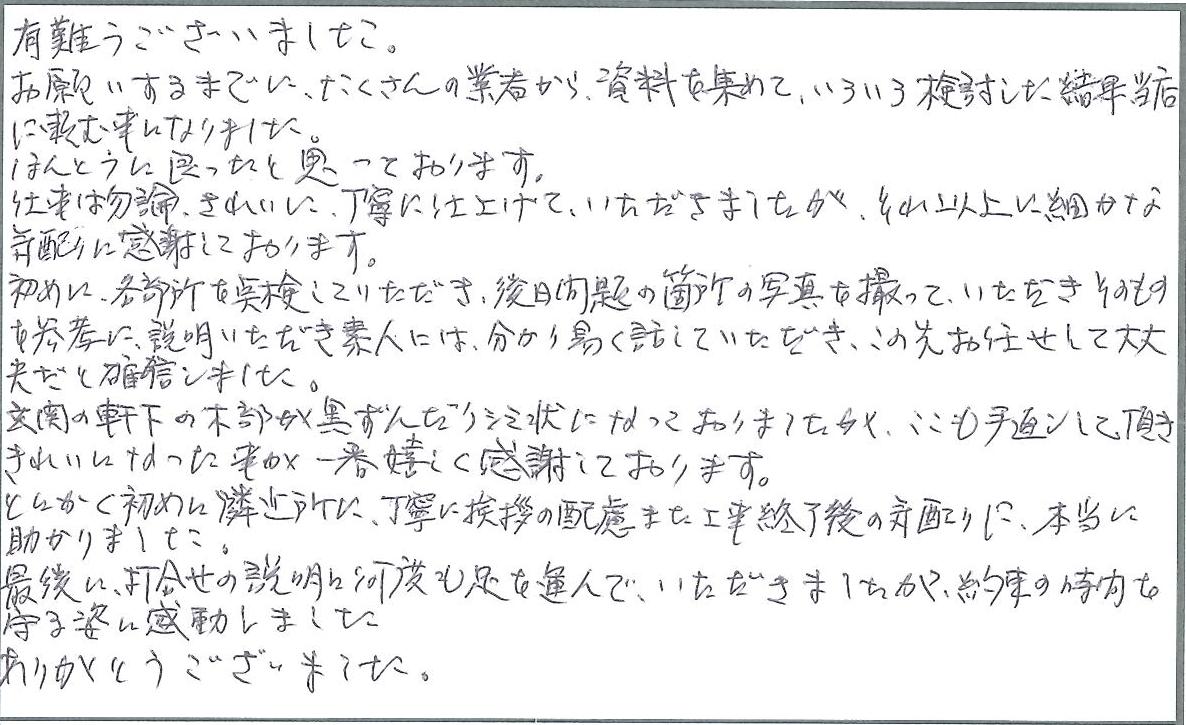 有難うございました。
お願いするまでに、たくさんの業者から、資料を集めて、いろいろ検討した結果当店
に頼む事になりました。
ほんとうに良かったと思っております。
仕事は勿論、きれいに、丁寧に仕上げて、いただきましたが、それ以上に細かな
気配りに感謝しております。
初めに、各部所を点検していただき、後日問題の箇所の写真を撮って、いただきそのもの
を参考に、説明いただき素人には、分かり易く話していただき、この先お任せして大丈
夫だと確信しました。
玄関の軒下の木部が黒ずんだりシミ状になっておりましたが、ここも手直しして頂き
きれいになった事が一番嬉しく感謝しております。
とにかく初めに隣近所に、丁寧に挨拶の配慮また工事終了後の気配りに、本当に
助かりました。
最後に、打合せの説明に何度も足を運んで、いただきましたが、約束の時間を
守る姿に感動しました
ありがとうございました。